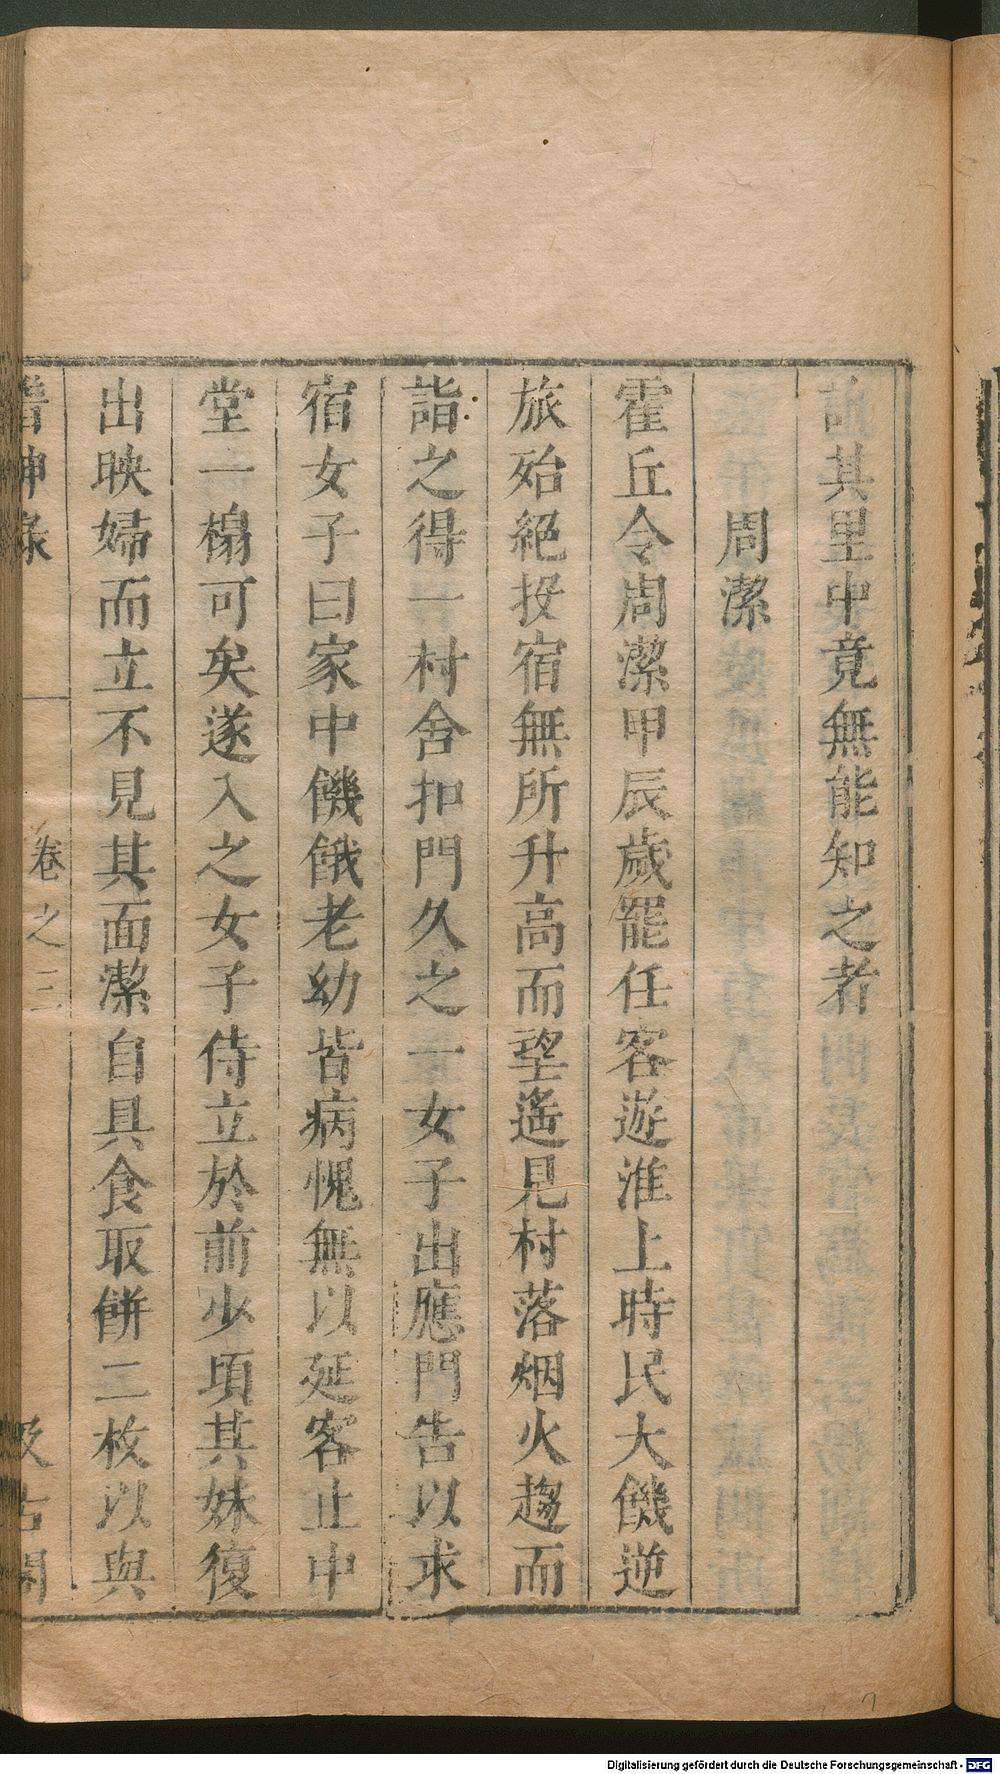 訪其里中竟無能知之者
周潔
霍丘令周潔甲辰歲罷任客遊淮上時民大饑逆
旅殆絕投宿無所升高而望遙見村落烟火趨而
詣之得一村舍扣門久之一女子出應門告以求
宿女子曰家中饑餓老幼皆病愧無以延客止中
堂一榻可矣遂入之女子侍立於前少頃其妹復
出映婦而立不見其面潔自具食取餅二枚以與
稽神錄 卷之三 汲古閣
Digitalisierung gefördert durch die Deutsche Forschungsgemeinschaft - DFG